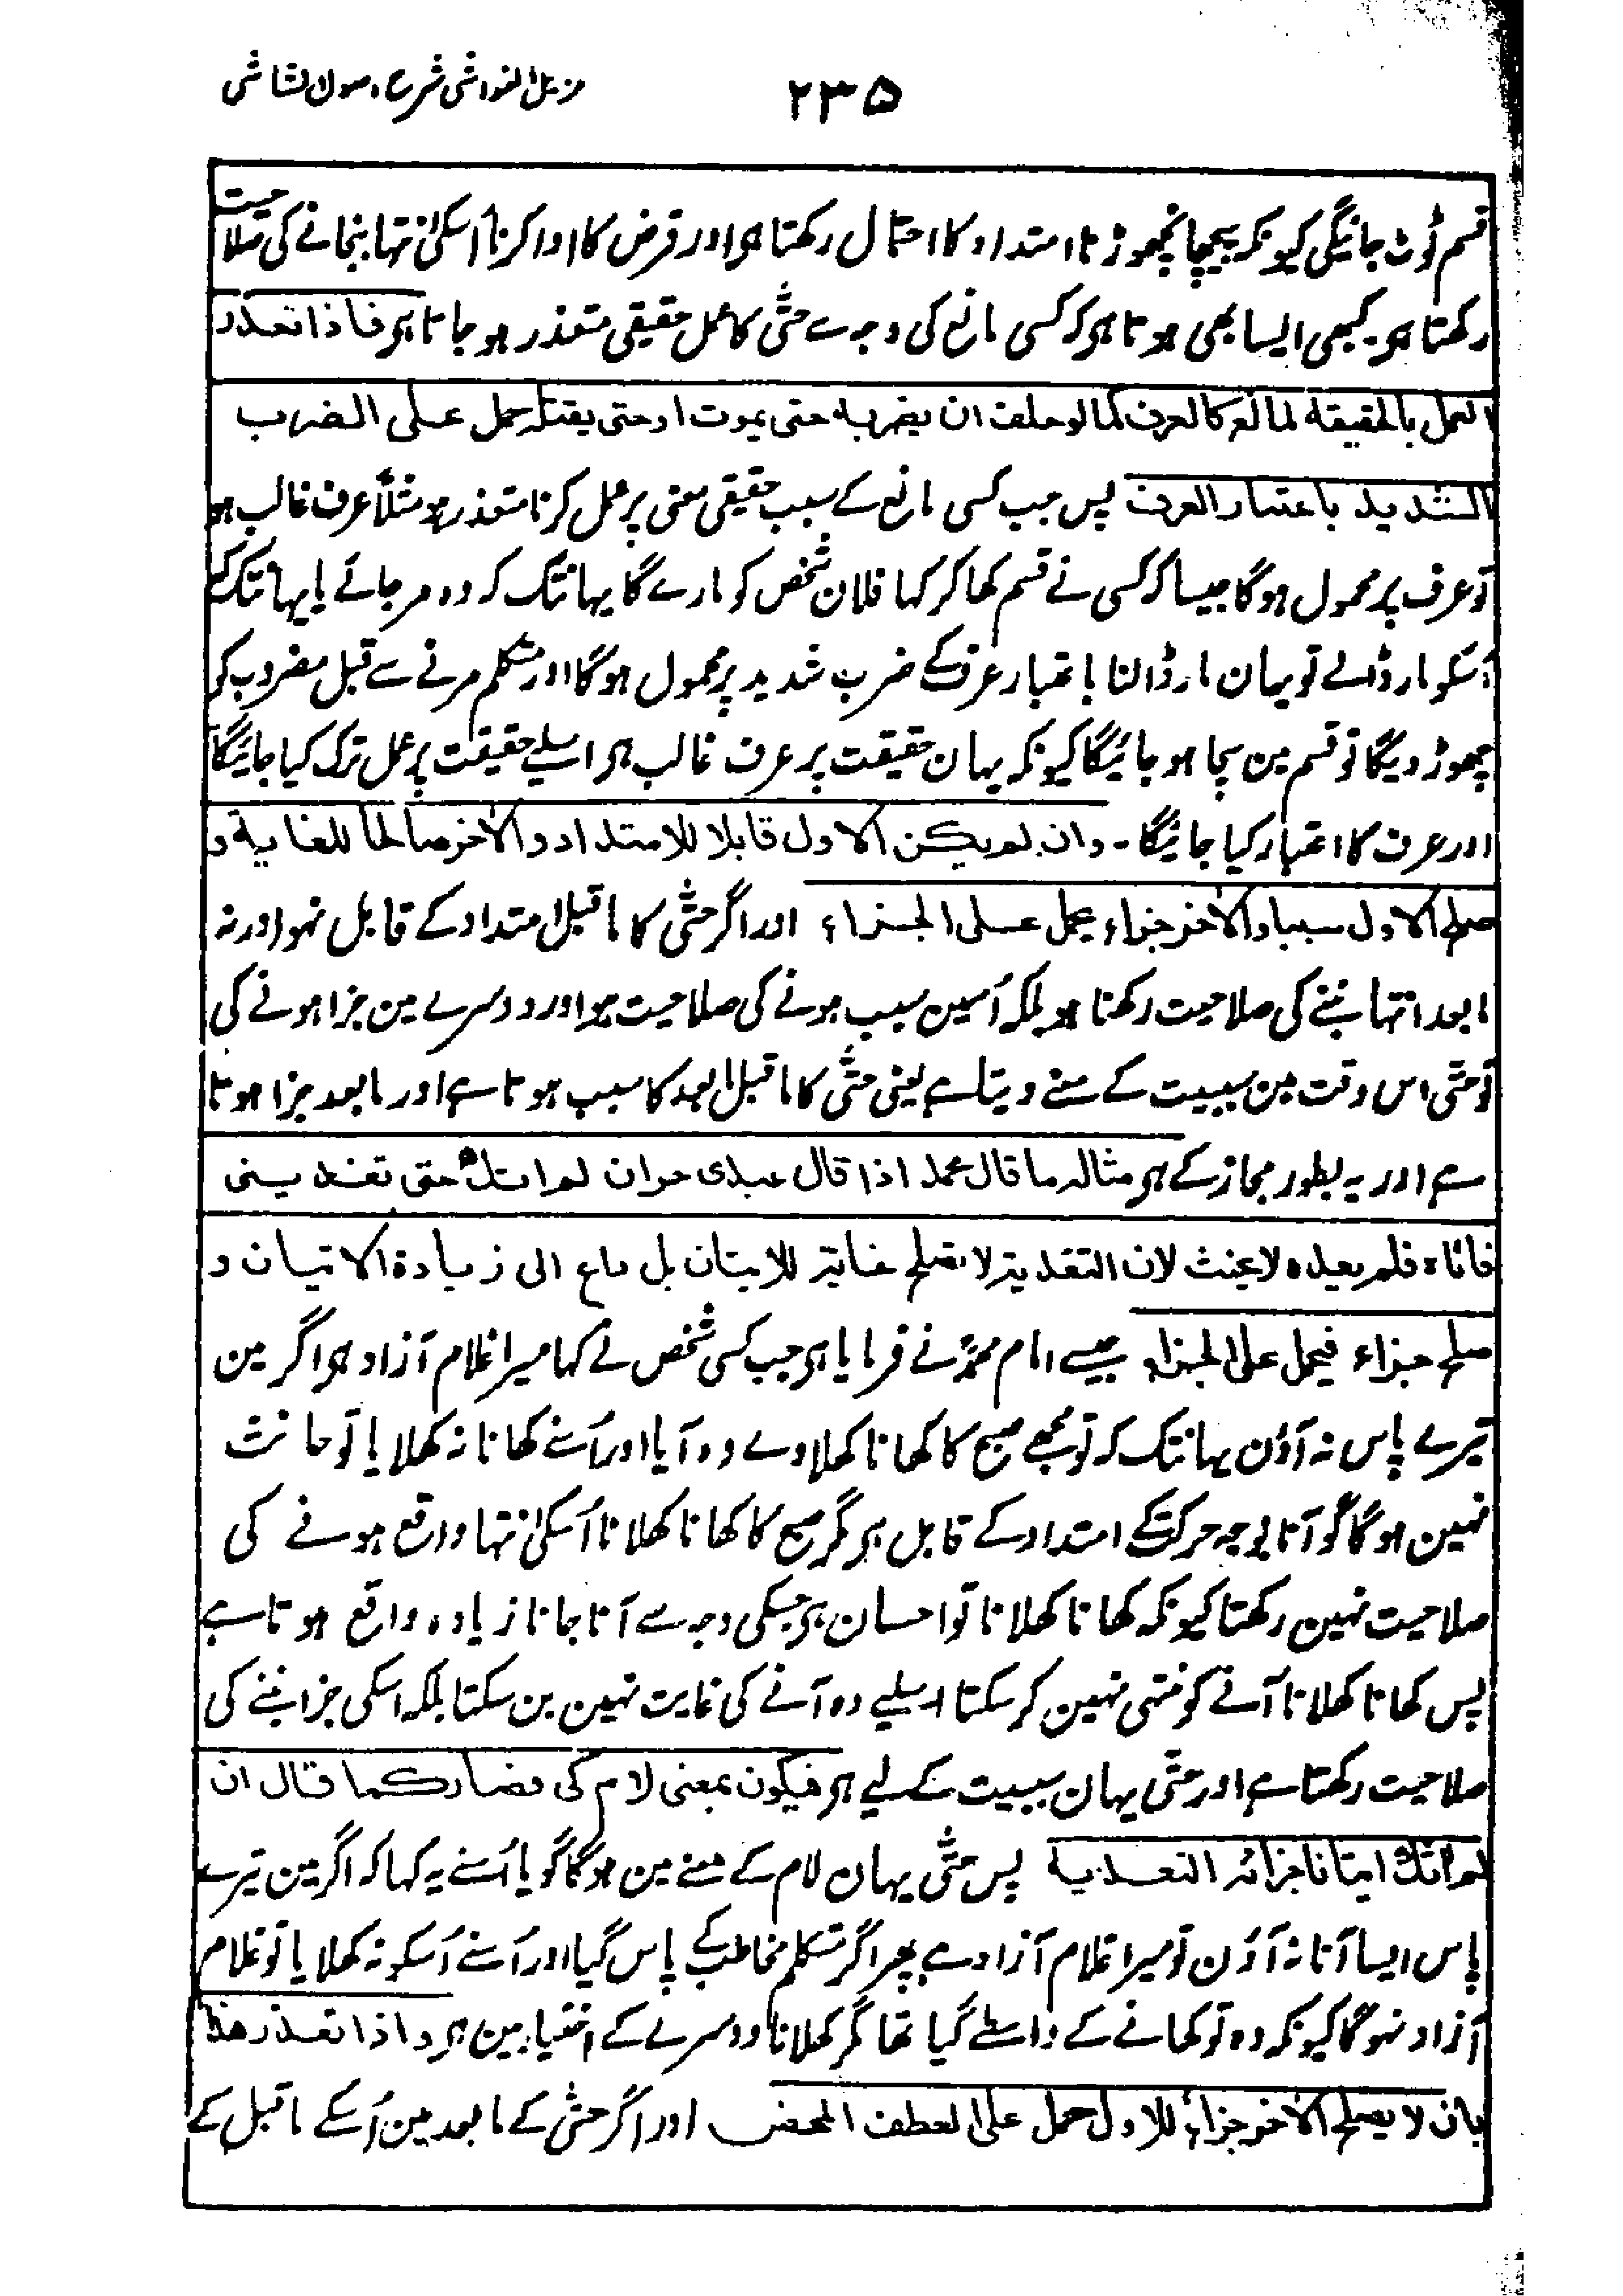 مزیل الغواشی شرح اصول الشاشی
۲۳۵
قسم ٹوٹ جائیگی کیونکہ پیچھا نچھوڑنا امتداد کا احتمال رکھتا ہی اور قرض کا ادا کرنا اُسکی انتہا بنجانے کی صلاحیت
رکھتا ہی۔ کبھی ایسا بھی ہوتا ہی کہ کسی مانع کی وجہ سے حتّٰی کا عمل حقیقی متعذر ہو جاتا ہی فاذا تعذر
العمل بالحقیقة لمانع کالعرف کما لو حلف ان یضربه حتی یموت او حتی یقتله حمل علی الضرب
الشدید باعتبار العرف پس جب کسی مانع کے سبب حقیقی معنی پر عمل کرنا متعذر ہو مثلاً عرف غالب ہو
تو عرف پر محمول ہوگا جیسا کہ کسی نے قسم کھا کر کہا فلان شخص کو مارے گا یہانتک کہ وہ مر جائے یا یہانتک کہ
اُسکو مار ڈالے تو یہان مار ڈالنا باعتبار عرف کے ضرب شدید پر محمول ہوگا اور متکلم مرنے سے قبل مضروب کو
چھوڑ دیگا تو قسم مین سچا ہو جائیگا کیونکہ یہان حقیقت پر عرف غالب ہی اسلیے حقیقت پر عمل ترک کیا جائیگا
اور عرف کا اعتبار کیا جائیگا۔ وان لم یکن الاول قابلا للامتداد والاٰخر صالحا للغایة و
صلح الاول سببا والاٰخر جزاء یحمل علی الجزاء اور اگر حتّٰی کا ماقبل امتداد کے قابل نہو اور نہ
مابعد انتہا بننے کی صلاحیت رکھتا ہو بلکہ اُسمین سبب ہونے کی صلاحیت ہو اور دوسرے مین جزا ہونے کی
تو حتّٰی اس وقت مین سببیت کے معنے دیتا ہے یعنی حتّٰی کا ماقبل مابعد کا سبب ہوتا ہے اور مابعد جزا ہوتا
ہے اور یہ بطور مجاز کے ہی مثاله ما قال محمد اذا قال عبدی حر ان لم اٰتک حتی تغدینی
فاتاه فلم یغده لا یحنث لان التغدیة لا تصلح غایة للاتیان بل داع الی زیادة الاتیان و
صلح جزاء فیحمل علی الجزاء جیسے امام محمدؒ نے فرمایا ہی جب کسی شخص نے کہا میرا غلام آزاد ہی اگر مین
تیرے پاس نہ آؤن یہانتک کہ تو مجھے صبح کا کھانا کھلاوے وہ آیا اور اُسنے کھانا نہ کھلایا تو حانث
نہین ہوگا گو آنا بوجہ حرکت کے امتداد کے قابل ہی مگر صبح کا کھانا کھلانا اُسکی انتہا واقع ہونے کی
صلاحیت نہین رکھتا کیونکہ کھانا کھلانا تو احسان ہی جسکی وجہ سے آنا جانا زیادہ واقع ہوتا ہے
پس کھانا کھلانا آنے کو منتہی نہین کر سکتا اسلیے وہ آنے کی غایت نہین بن سکتا بلکہ اسکی جزا بننے کی
صلاحیت رکھتا ہے اور حتّٰی یہان سببیت کے لیے ہی فیکون بمعنی لام کی فصار کما قال ان
لم اٰتک اتیانا جزائه التغدیة پس حتّٰی یہان لام کے معنے مین ہوگا گویا اُسنے یہ کہا کہ اگر مین تیرے
پاس ایسا آنا نہ آؤن تو میرا غلام آزاد ہے پھر اگر متکلم مخاطب کے پاس گیا اور اُسنے اُسکو نہ کھلایا تو غلام
آزاد نہوگا کیونکہ وہ تو کھانے کے واسطے گیا تھا مگر کھلانا دوسرے کے اختیار مین ہی واذا تعذر هذا
بان لا یصلح الاٰخر جزاءً للاول حمل علی العطف المحض اور اگر حتّٰی کے مابعد مین اُسکے ماقبل کے